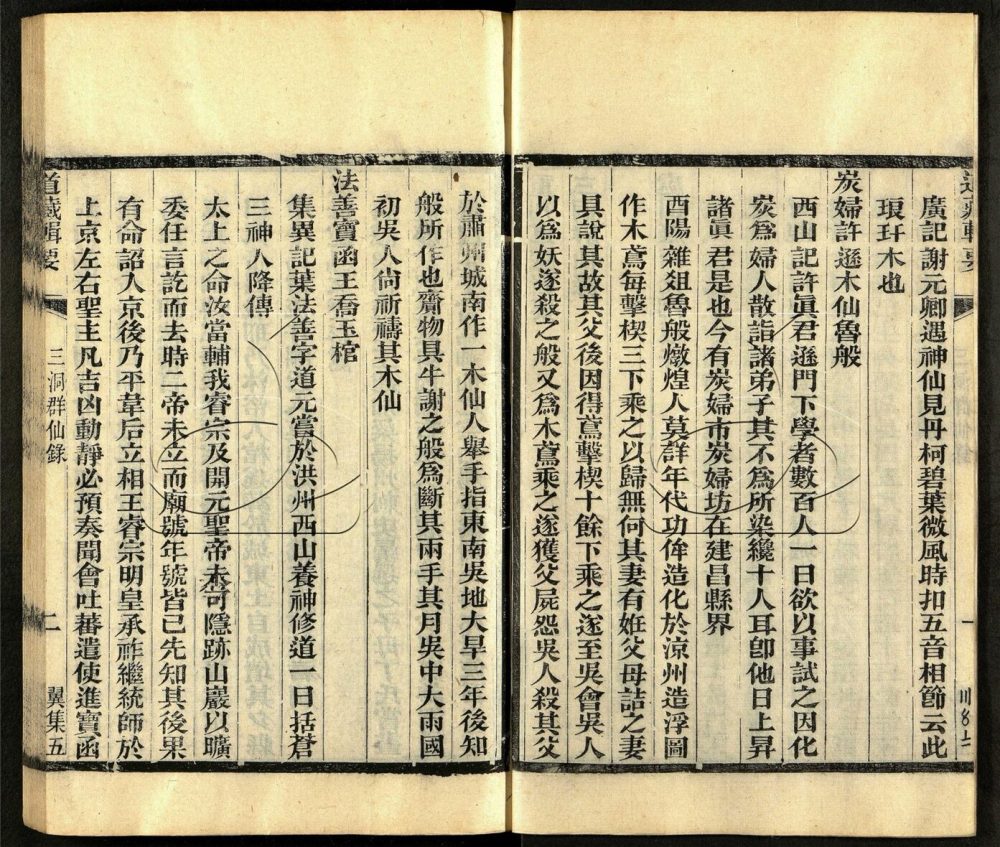 廣記謝元卿遇神仙見丹柯碧葉微風時扣五音相節云此
琅玕木也
炭婦許遜木仙魯般
西山記許眞君遜門下學者數百人一日欲以事試之因化
炭爲婦人散詣諸弟子其不爲所染纔十人耳卽他日上昇
諸眞君是也今有炭婦市炭婦坊在建昌縣界
酉陽雜俎魯般燉煌人莫詳年代功侔造化於涼州造浮圖
作木鳶每擊楔三下乘之以歸無何其妻有姙父母詰之妻
具說其故其父後因得鳶擊楔十餘下乘之遂至吳會吳人
以爲妖遂殺之般又爲木鳶乘之遂獲父屍怨吳人殺其父
於肅州城南作一木仙人舉手指東南吳地大旱三年後知
般所作也齎物具牛謝之般爲斷其兩手其月吳中大雨國
初吳人尙祈禱其木仙
法善寶函王喬玉棺
集異記葉法善字道元嘗於洪州西山養神修道一日括蒼
三神人降傳
太上之命汝當輔我睿宗及開元聖帝未可隱跡山巖以曠
委任言訖而去時二帝未立而廟號年號皆已先知其後果
有命詔入京後乃平韋后立相王睿宗明皇承祚繼統師於
上京左右聖主凡吉凶動靜必預奏聞會吐蕃遣使進寶函
道藏輯要
三洞群仙錄
二
翼集五